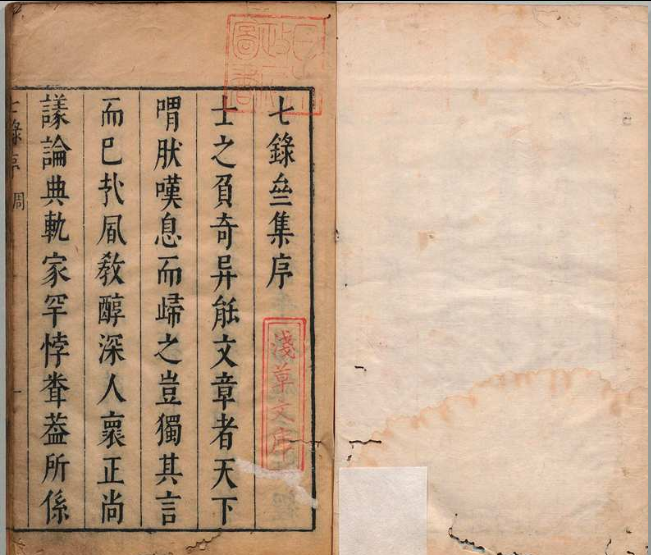 七錄亝集序
士之負奇异能文章者天下
喟肰嘆息而歸之豈獨其言
而已㢤風敎醇深人褱正尚
議論典軌家罕悖葢所係
七錄序 周
淺草文庫